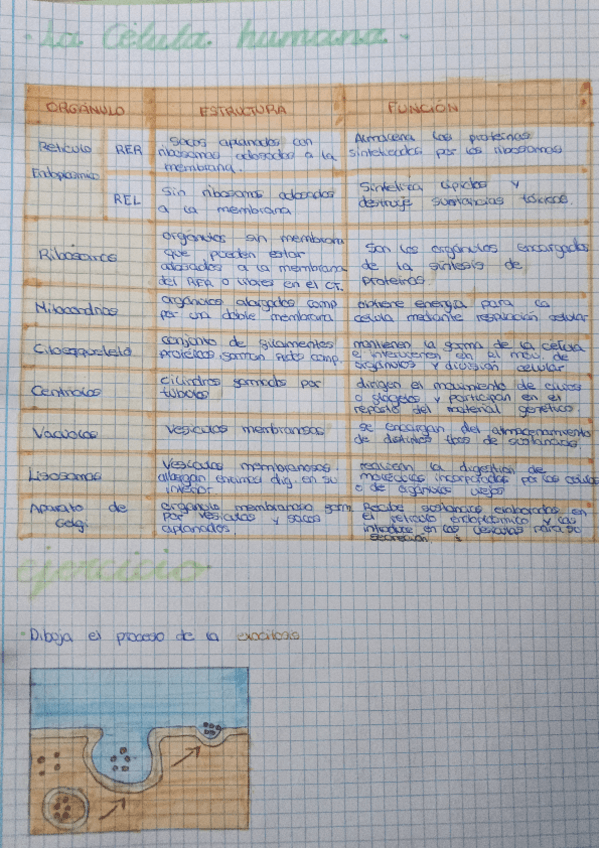 · La Célula humana ·
ORGÁNULO ESTRUCTURA FUNCIÓN
Retículo
Endoplasmico
RER
sacos aplanados con
ribosomas adosados a la
membrana.
Almacena las proteínas
sintetizadas por los ribosomas
REL
Sin ribosomas adosados
a la membrana
Sintetiza lípidos y
destruye sustancias tóxicas.
Ribosomas
orgánulos sin membrana
que pueden estar
adosados a la membrana
del RER o libres en el CT.
Son los orgánulos encargados
de la síntesis de
Proteínas.
Mitocondrias
orgánulos alargados comp
por una doble membrana
obtiene energía para la
célula mediante respiración celular
Citoesqueleto
conjunto de filamentos
proteicos forman redes comp.
mantienen la forma de la célula
e intervienen en el mov. de
orgánulos y división celular
Centriolos
cilindros formados por
túbulos
dirigen el movimiento de cilios
o flagelos y participan en el
reparto del material genético.
Vacuolas
vesículas membranosas
se encargan del almacenamiento
de distintos tipos de sustancias.
Lisosomas
Vesículas membranosas.
albergan enzimas dig. en su
interior.
realizan la digestión de
moléculas incorporadas por las células
o de orgánulos viejos
Aparato de
Golgi.
orgánulo membranoso form.
por vesículas y sacos
aplanados.
Recibe sustancias elaboradas en
el retículo endoplásmico y las
introduce en las vesículas para su
secreción.
ejercicio
· Dibuja el proceso de la exocitosis